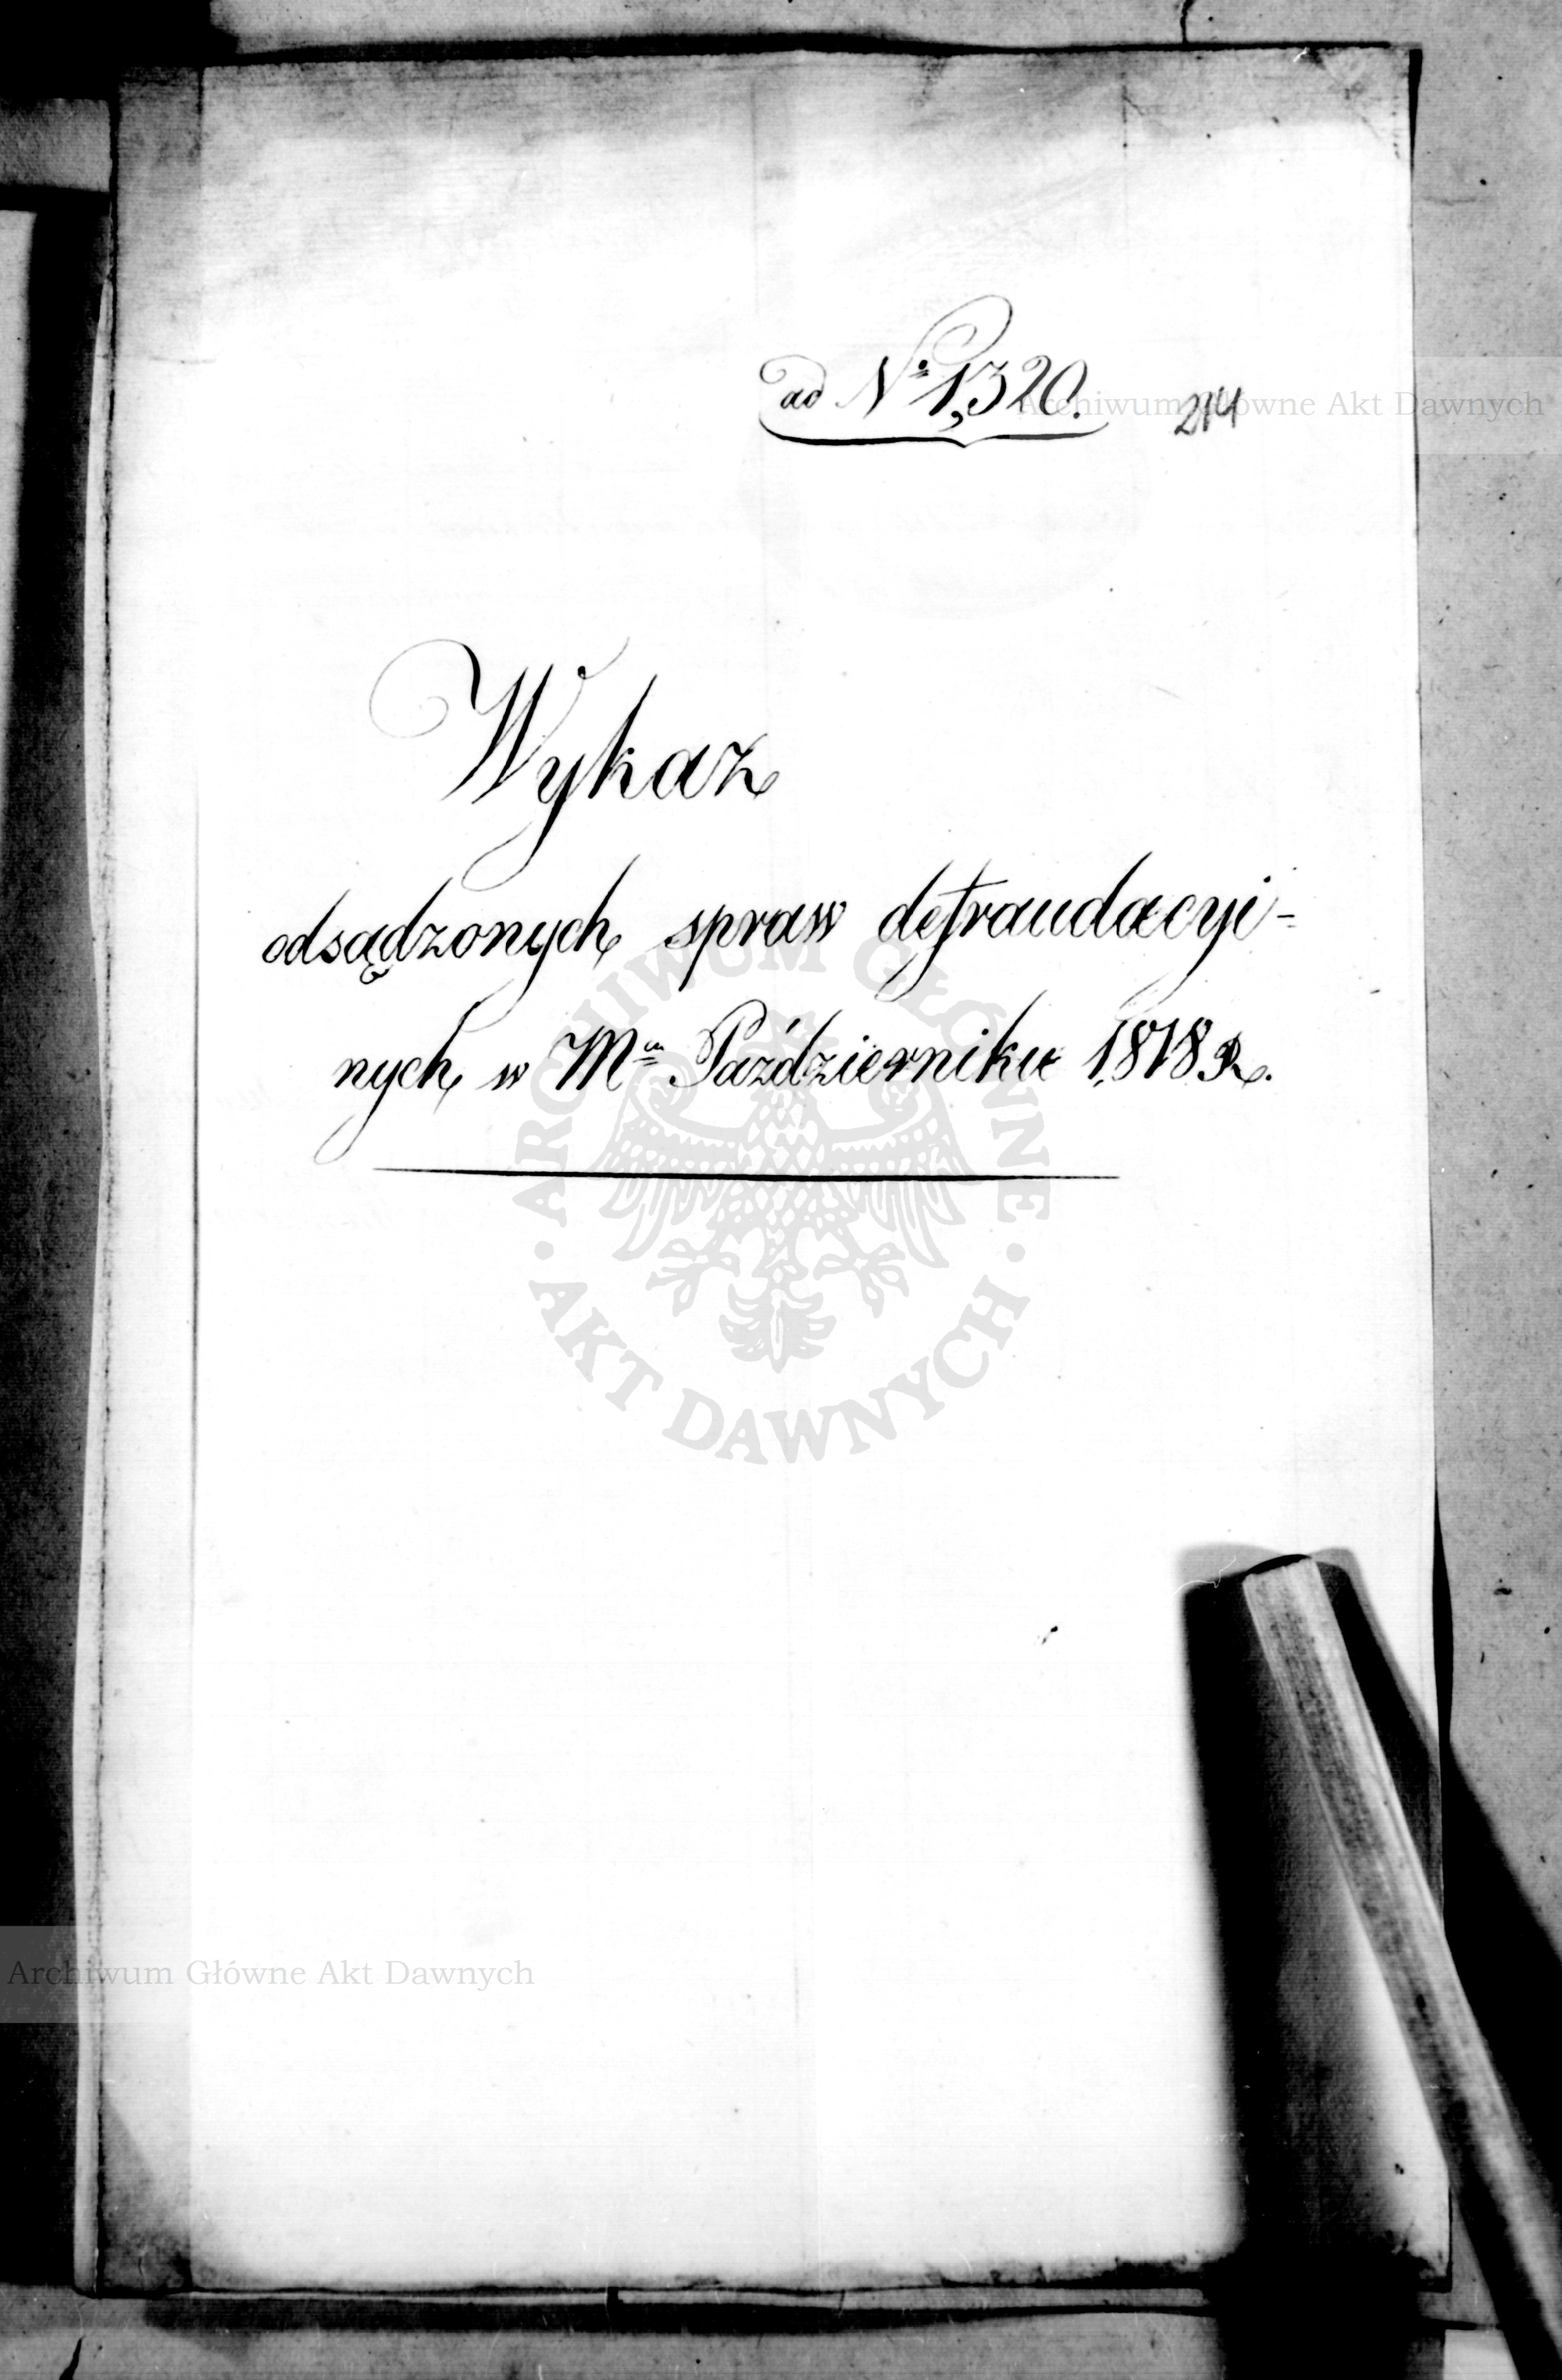 ad No 1,320.
214
Wykaz
odsądzonych spraw defraudacyi-
nych w Mcu Październiku 1818 R.
Archiwum Główne Akt Dawnych
ARCHIWUM GŁÓWNE
AKT DAWNYCH
Archiwum Główne Akt Dawnych